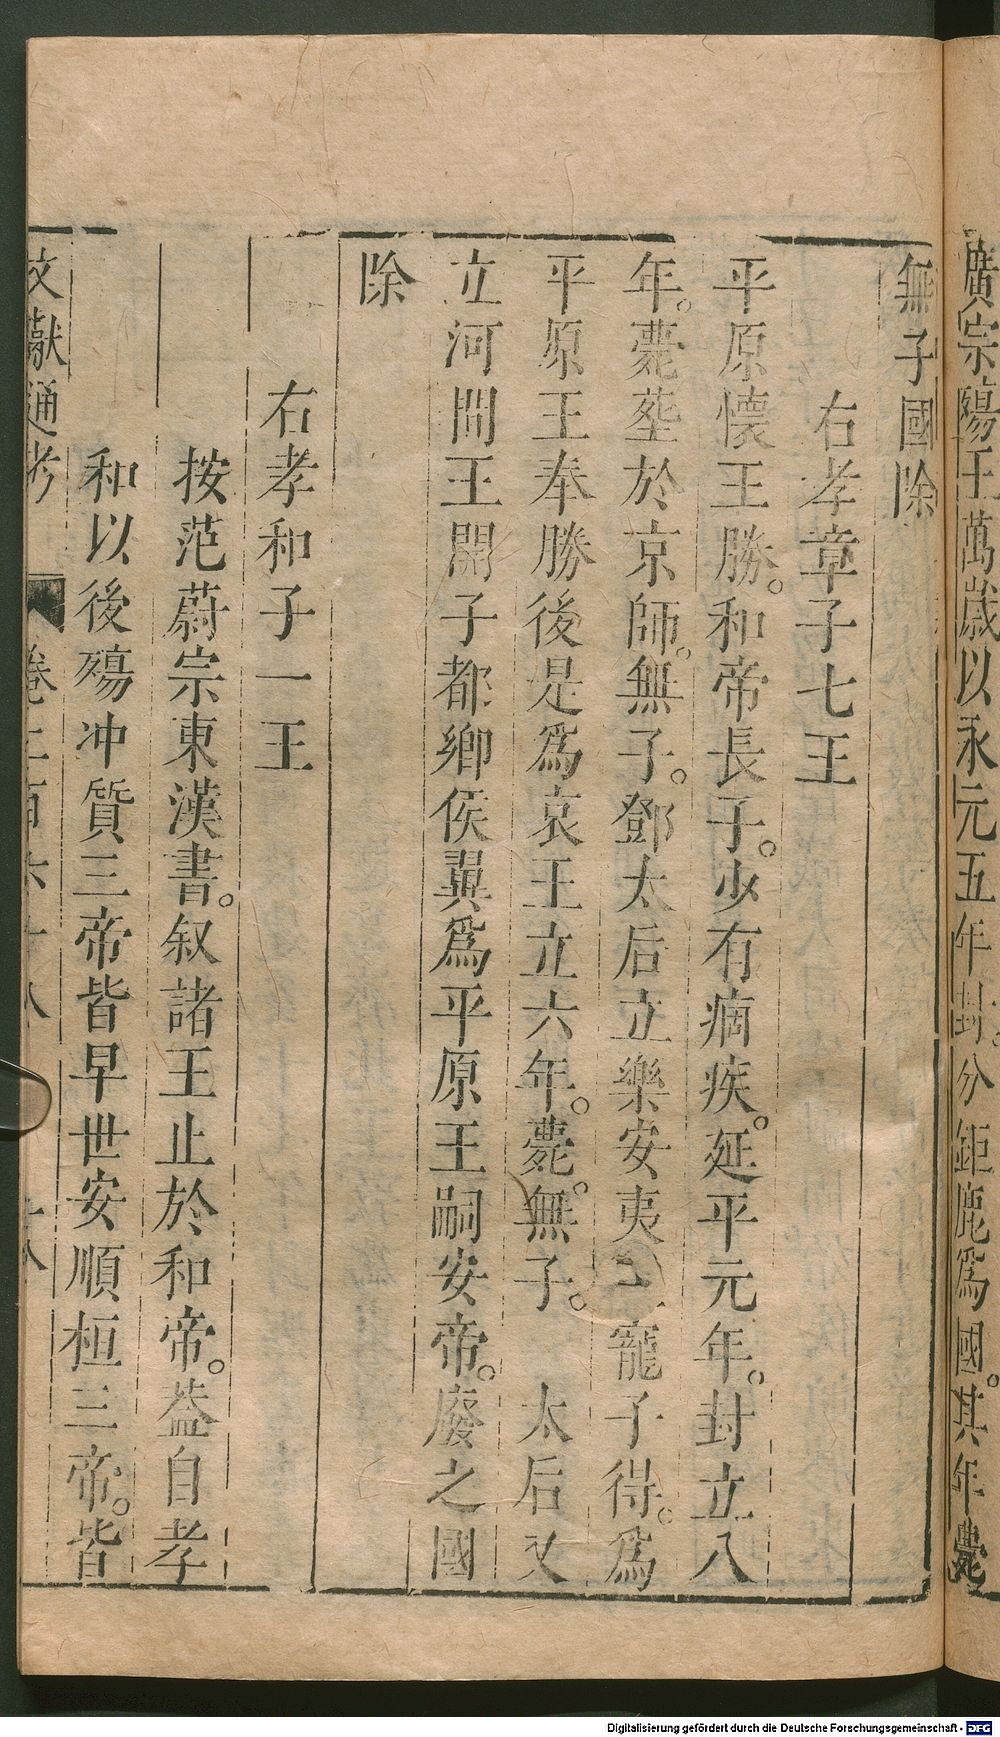 廣宗殤王萬歲以永元五年封。分鉅鹿爲國。其年薨
無子國除
右孝章子七王
平原懷王勝。和帝長子。少有痼疾。延平元年。封立八
年。薨塟於京師。無子。鄧太后立樂安夷王寵子得。爲
平原王奉勝後是爲哀王立六年。薨。無子。太后又
立河間王開子都鄉侯翼爲平原王嗣安帝。廢之國
除
右孝和子一王
按范蔚宗東漢書。叙諸王止於和帝。葢自孝
和以後殤冲質三帝皆早世安順桓三帝。皆
文獻通考 卷二百六十八 十八
Digitalisierung gefördert durch die Deutsche Forschungsgemeinschaft - DFG